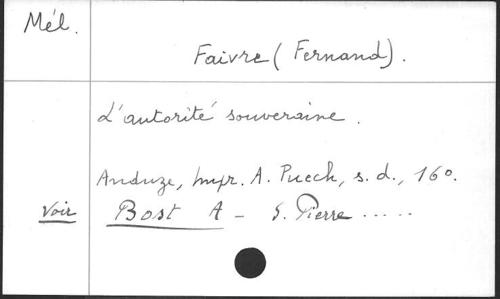 Mél.
Faivre (Fernand).
L'autorité souveraine.
Anduze, Impr. A. Puech, s. d., 16º.
Voir Bost A - S. Pierre .....